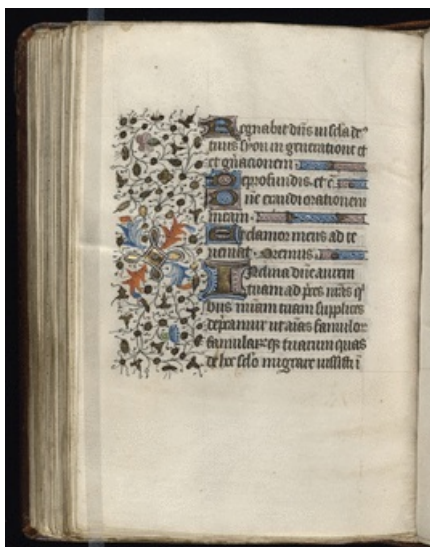 Regnabit dn̄s in sc̄la de⁹
tuus syon in generatione et
et gn̄acionem.
De profundis. et c̄.
Dn̄e exaudi orationem
meam.
Et clamor meus ad te
ueniat. Oremus.
Inclina dn̄e aurem
tuam ad p̄ces nr̄as q̄
bus mīam tuam supplices
deprecamur ut aīas famulor
famularūq₃ tuarum quas
de hoc sc̄lo migrare iussisti ī